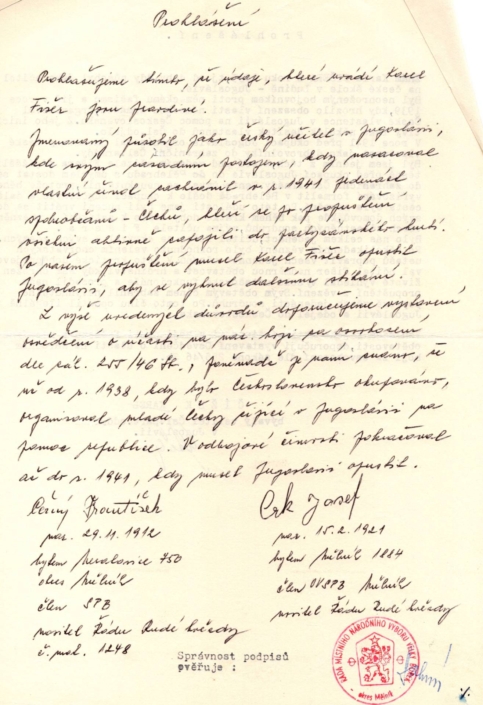 Prohlášení
Prohlašujeme tímto, že údaje, které uvádí Karel
Fišer jsou pravdivé.
Jmenovaný působil jako český učitel v Jugoslávii,
kde svým zásadním postojem, kdy nasazoval
vlastní život zachránil v r. 1941 jedenáct
spoluobčanů - Čechů, kteří se po propuštění
všichni aktivně zapojili do partyzánského hnutí.
Po našem propuštění musel Karel Fišer opustit
Jugoslávii, aby se vyhnul dalšímu stíhání.
Z výše uvedených důvodů doporučujeme vystavení
osvědčení o účasti na nár. boji za osvobození
dle zák. 255/46 Sb., poněvadž je nám známo, že
už od r. 1938, kdy bylo Československo okupováno,
organisoval mladé Čechy žijící v Jugoslávii na
pomoc republice. V odbojové činnosti pokračoval
až do r. 1941, kdy musel Jugoslávii opustit.
Černý František
nar. 29.11.1912
bytem 750
okres Mělník
člen SPB
nositel Řádu Rudé hvězdy
č. mat. 1248
Crk Josef
nar. 15.2.1921
bytem Mělník 1884
člen OVSPB Mělník
nositel Řádu Rudé hvězdy
Správnost podpisů
ověřuje :
RADA MÍSTNÍHO NÁRODNÍHO VÝBORU VELKÝ BOREK
okres Mělník
·/.